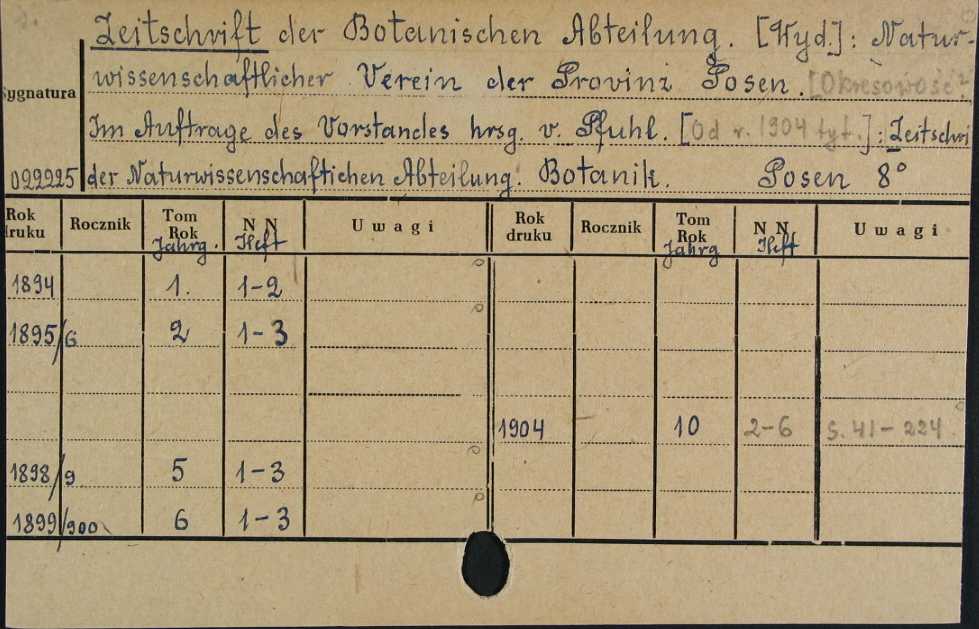 Zeitschrift der Botanischen Abteilung. [Wyd.]: Natur-
wissenschaftlicher Verein der Provinz Posen. [Okresowość?
Sygnatura
Im Auftrage des Vorstandes hrsg. v. Pfuhl. [Od r. 1904 tyt.]: Zeitschr.
022225 der Naturwissenschaftlichen Abteilung. Botanik. Posen 8°
Rok druku Rocznik Tom Rok Jahrg. N N Heft Uwagi Rok druku Rocznik Tom Rok Jahrg N N Heft Uwagi
1894 1. 1-2
1895/6 2 1-3
1904 10 2-6 s. 41-224
1898/9 5 1-3
1899/900 6 1-3